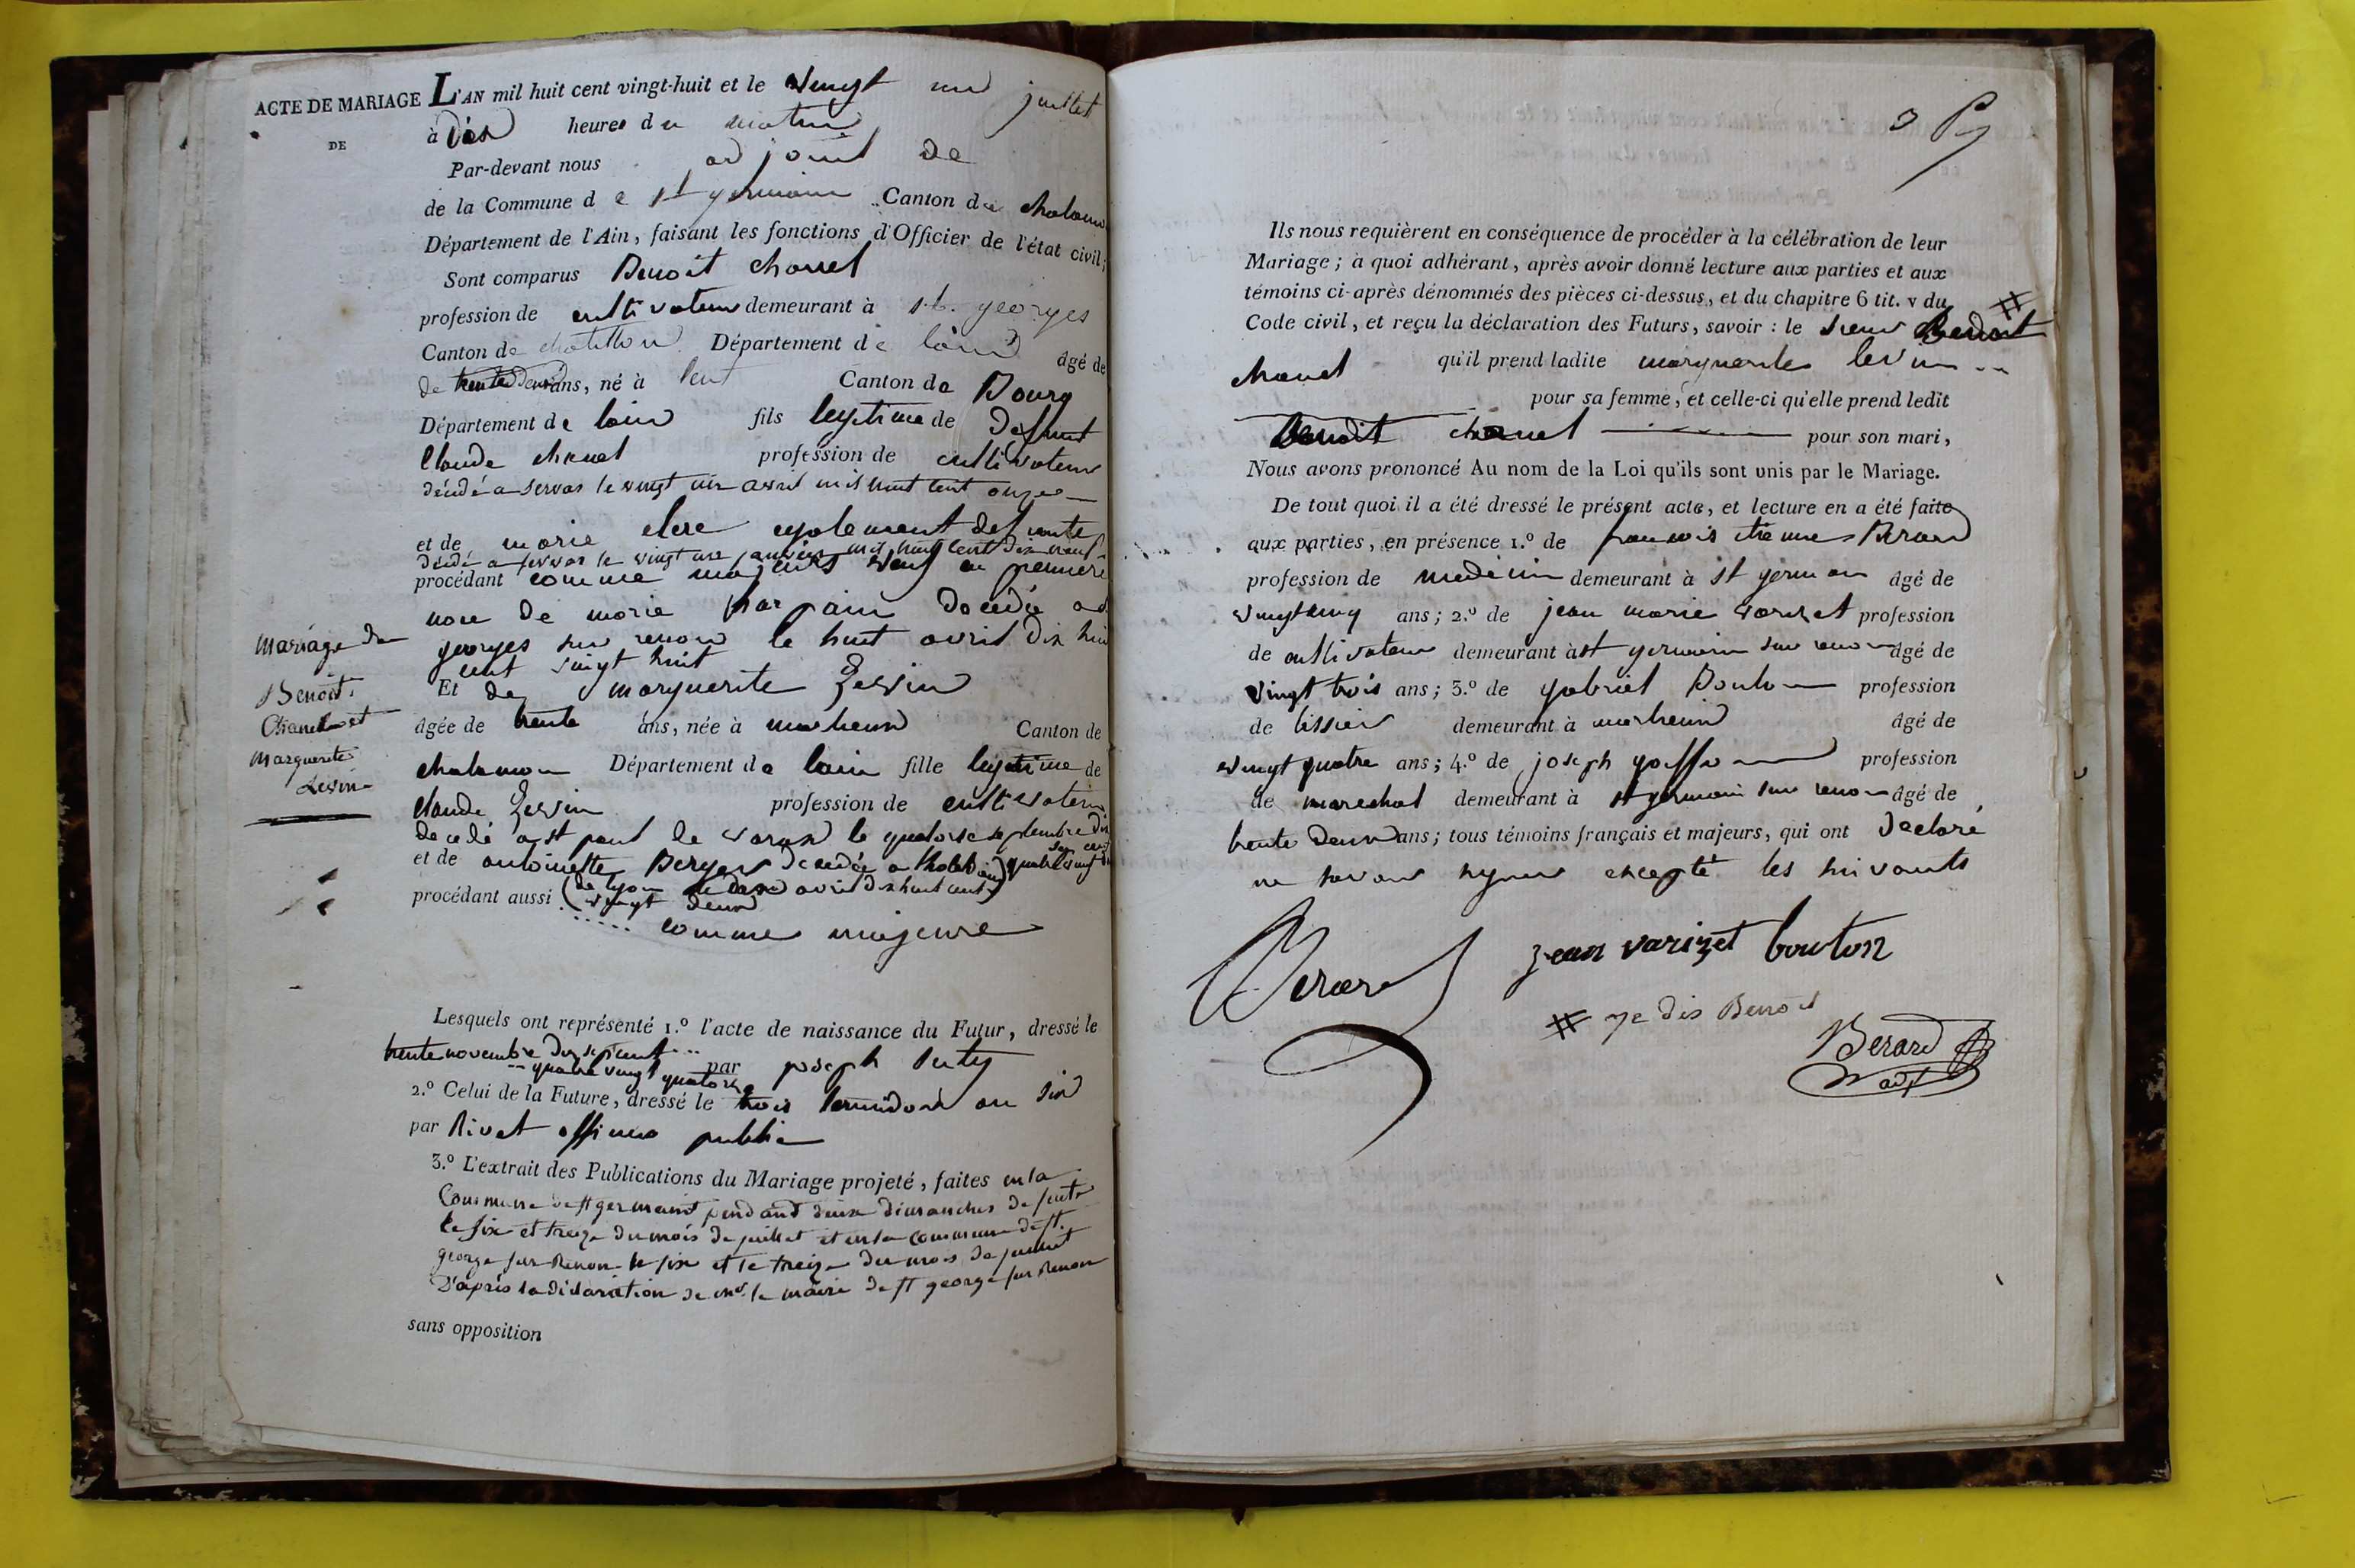 ACTE DE MARIAGE L'AN mil huit cent vingt-huit et le vingt un juillet
DE
à dix heures du matin
Par-devant nous adjoint de
de la Commune de st germain Canton de chalamon
Département de l'Ain, faisant les fonctions d'Officier de l'état civil;
Sont comparus Benoit chanel
profession de cultivateur demeurant à st. georges
Canton de chatillon Département de lain âgé de
de trente deux ans, né à lent Canton de Bourg
Département de lain fils legitime de defunt
Claude chanel profession de cultivateur
décédé a servas le vingt avril mil huit cent onze
et de marie clere egalement defunte
décédé a servas le vingt janvier mil huit cent dix neuf
procédant comme majeurs veuf en premiere
noce de marie decedée a
georges sur renon le huit avril dix huit
cent vingt huit
Mariage de
Benoit
Chanel et
Marguerite
Levin
Et de marguerite Levin
âgée de trente ans, née à marlieux Canton de
chalamon Département de lain fille legitime de
claude Levin profession de cultivateur
decedé a st paul de varax le quatorse septembre dix
sep cent
et de antoinette Berger decedée a quatre vingt
procédant aussi (de lyon avril dix huit cent
vingt deux
comme majeure
Lesquels ont représenté 1.º l'acte de naissance du Futur, dressé le
trente novembre dix sept cent
quatre vingt quatorze par joseph
2.º Celui de la Future, dressé le trois termidor an six
par Rivet officier public
3.º L'extrait des Publications du Mariage projeté, faites en la
Commune de st germain pendant deux dimanches de suite
le six et treize du mois de juillet et en la commune de st.
george sur Renon le six et le treize du mois de juillet
D'après la déclaration de mr. le maire de st george sur Renon
sans opposition
Ils nous requièrent en conséquence de procéder à la célébration de leur
Mariage; à quoi adhérant, après avoir donné lecture aux parties et aux
témoins ci-après dénommés des pièces ci-dessus, et du chapitre 6 tit. v du
Code civil, et reçu la déclaration des Futurs, savoir: le sieur Benoit #
chanel qu'il prend ladite marguerite levin
pour sa femme, et celle-ci qu'elle prend ledit
Benoit chanel pour son mari,
Nous avons prononcé Au nom de la Loi qu'ils sont unis par le Mariage.
De tout quoi il a été dressé le présent acte, et lecture en a été faite
aux parties, en présence 1.º de francois etienne Berard
profession de medecin demeurant à st germain âgé de
vingt cinq ans; 2.º de jean marie varizet profession
de cultivateur demeurant à st germain sur renon âgé de
vingt trois ans; 3.º de gabriel Bouton profession
de tissier demeurant à marlieux âgé de
vingt quatre ans; 4.º de joseph profession
de marechal demeurant à st germain sur renon âgé de
trente deux ans; tous témoins français et majeurs, qui ont declaré
ne savoir signer excepté les suivants
Berard jean varizet bouton
# je dis Benoit
Berard
adjt